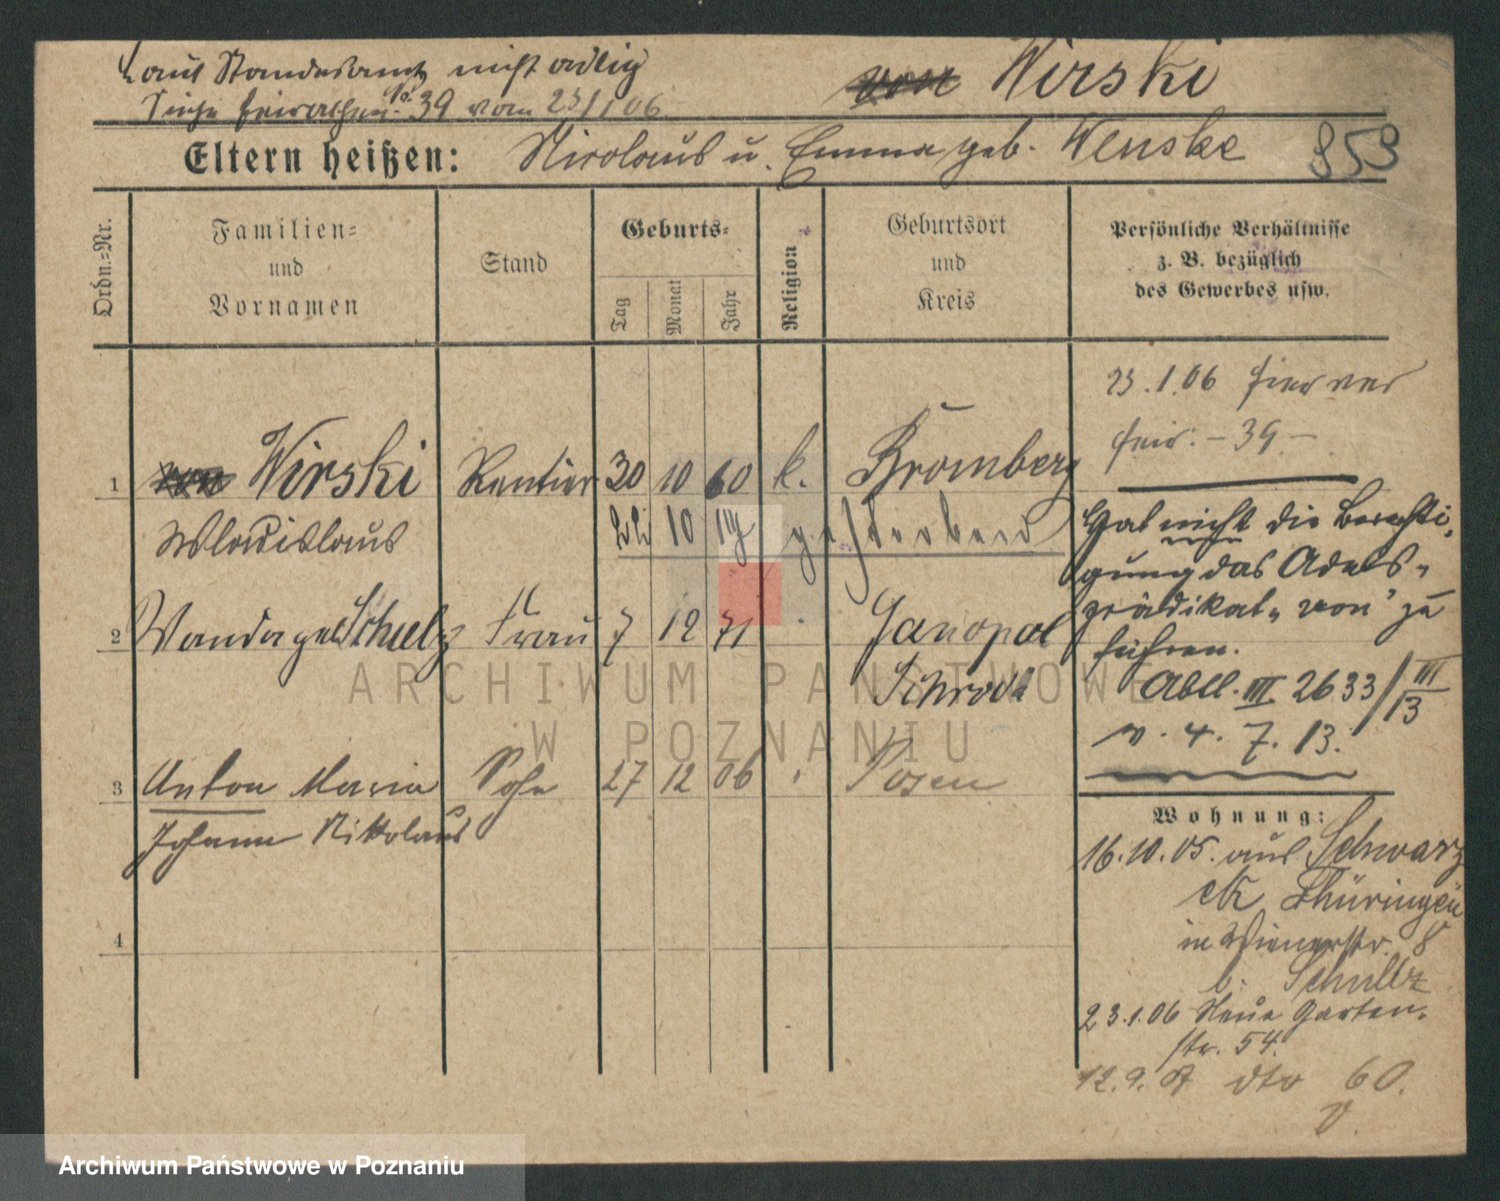 Laut Standesamt nicht adlig
Siehe Heiratsen. No. 39 vom 23/1 06.
von Wirski
Eltern heißen: Nicolaus u. Emma geb. Wenske
853
Ordn.=Nr.
Familien=
und
Vornamen
Stand
Geburts=
Tag
Monat
Jahr
Religion
Geburtsort
und
Kreis
Persönliche Verhältnisse
z. B. bezüglich
des Gewerbes usw.
1 von Wirski Rentier 30 10 60 k. Bromberg
Wladislaus 22 10 gestorben
2 Wanda geb Schulz Frau 7 12 71 Janopol
Schroda
3 Anton Maria Sohn 27 12 06 " Posen
Johann Nikolaus
4
23.1.06 hier ver
heir: – 39 –
Hat nicht die Berechti-
gung das Adels-
prädikat „von" zu
führen.
Abtl. III 2633/III 13
v. 4. 7. 13.
Wohnung:
16.10.05. aus Schwarz
eck Thüringen
in Wienerstr. 8
b. Schultz
23.1.06 Neue Garten-
str. 54.
12.9.07 dto 60.
ARCHIWUM PAŃSTWOWE
W POZNANIU
Archiwum Państwowe w Poznaniu